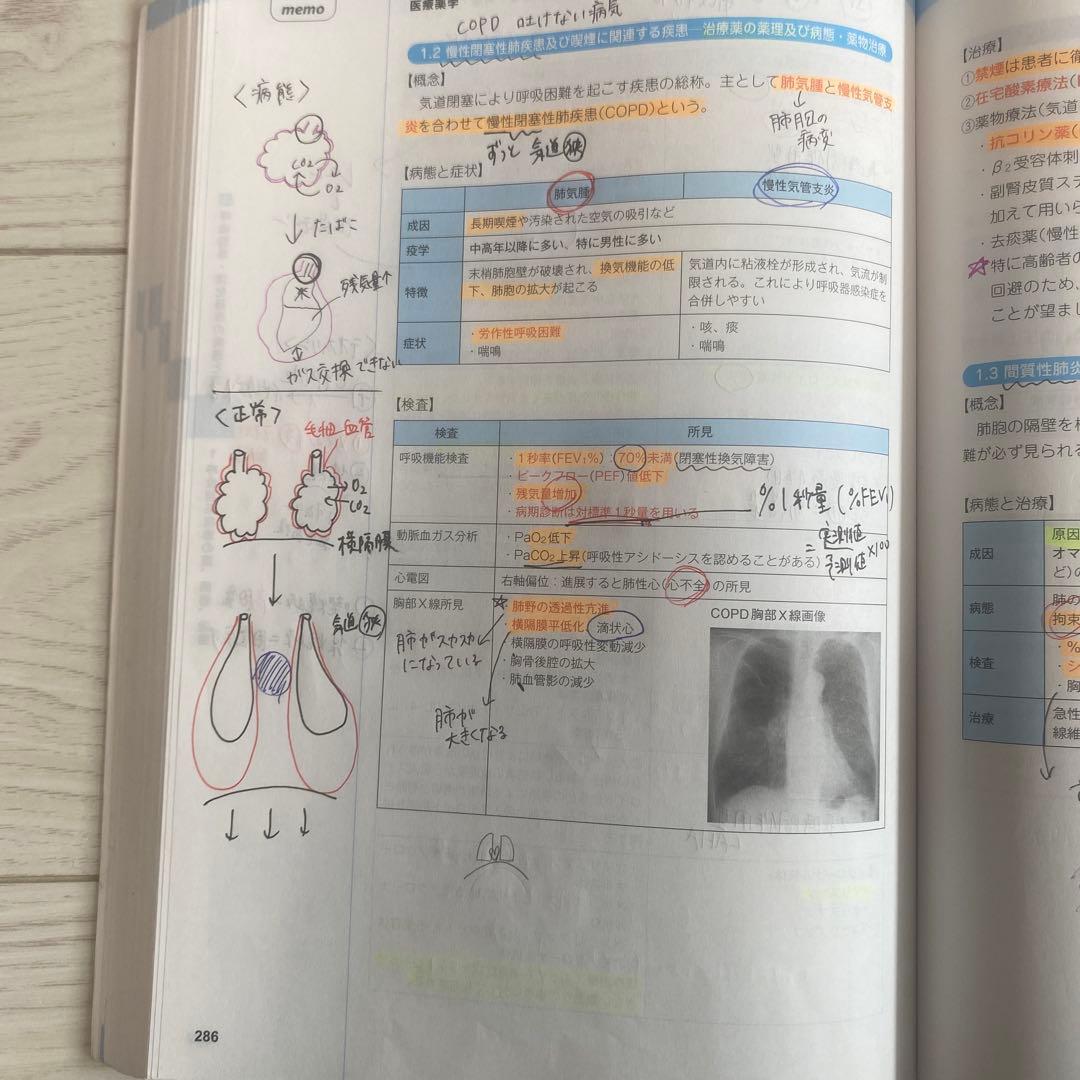 memo
医療薬学
COPD 吐けない病気
1.2 慢性閉塞性肺疾患及び喫煙に関連する疾患―治療薬の薬理及び病態・薬物治療
【概念】
気道閉塞により呼吸困難を起こす疾患の総称。主として肺気腫と慢性気管支
炎を合わせて慢性閉塞性肺疾患(COPD)という。
ずっと 気道狭
肺胞の
病変
【病態と症状】
肺気腫
慢性気管支炎
成因
長期喫煙や汚染された空気の吸引など
疫学
中高年以降に多い、特に男性に多い
特徴
末梢肺胞壁が破壊され、換気機能の低
下、肺胞の拡大が起こる
気道内に粘液栓が形成され、気流が制
限される。これにより呼吸器感染症を
合併しやすい
症状
・労作性呼吸困難
・喘鳴
・咳、痰
・喘鳴
【検査】
検査
所見
呼吸機能検査
・1秒率(FEV₁%):70%未満(閉塞性換気障害)
・ピークフロー(PEF)値低下
・残気量増加
・病期診断は対標準1秒量を用いる
%1秒量(%FEV₁)
=実測値
予測値×100
動脈血ガス分析
・PaO₂低下
・PaCO₂上昇(呼吸性アシドーシスを認めることがある)
心電図
右軸偏位:進展すると肺性心(心不全)の所見
胸部X線所見
・肺野の透過性亢進
・横隔膜平低化、滴状心
・横隔膜の呼吸性変動減少
・胸骨後腔の拡大
・肺血管影の減少
COPD胸部X線画像
肺がスカスカ
になっている
肺が
大きくなる
<病態>
CO₂
O₂
↓たばこ
残気量↑
ガス交換できない
<正常>
毛細血管
O₂
CO₂
横隔膜
気道狭
286
【治療】
①禁煙は患者に
②在宅酸素療法(
③薬物療法(気道
・抗コリン薬(
・β₂受容体刺
・副腎皮質ステ
加えて用いら
・去痰薬(慢性
☆特に高齢者の
回避のため、
ことが望まし
1.3 間質性肺炎
【概念】
肺胞の隔壁を
難が必ず見られる
【病態と治療】
成因
原因
オマ
ど)の
病態
肺の
拘束
検査
・%
・シ
・胸
治療
急性
線維